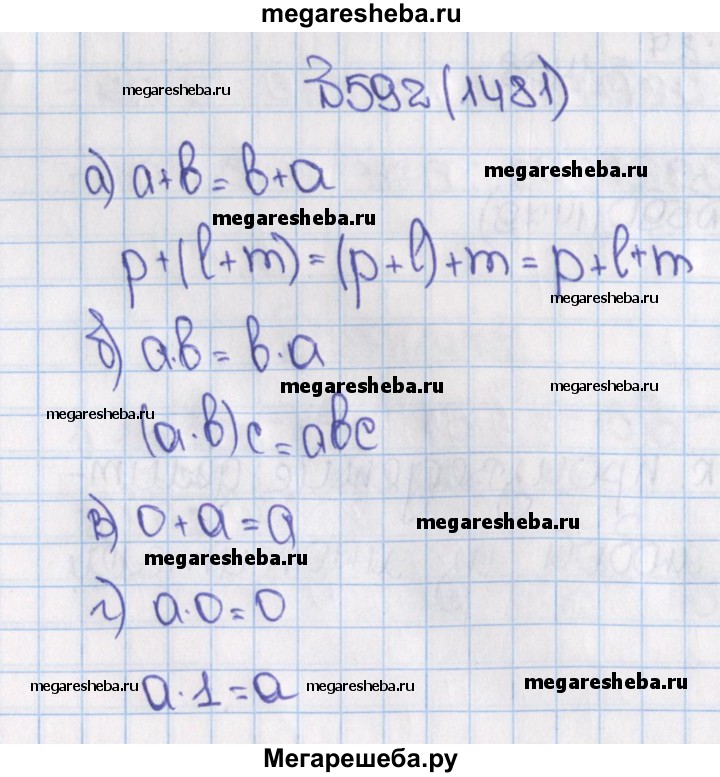 megaresheba.ru
megaresheba.ru
№592 (1481)
а) a+b=b+a
megaresheba.ru
megaresheba.ru
p+(l+m)=(p+l)+m=p+l+m
megaresheba.ru
б) a·b=b·a
megaresheba.ru
megaresheba.ru
megaresheba.ru
(a·b)c=abc
в) 0+a=a
megaresheba.ru
megaresheba.ru
г) a·0=0
megaresheba.ru
a·1=a
megaresheba.ru
megaresheba.ru
Мегарешеба.ру